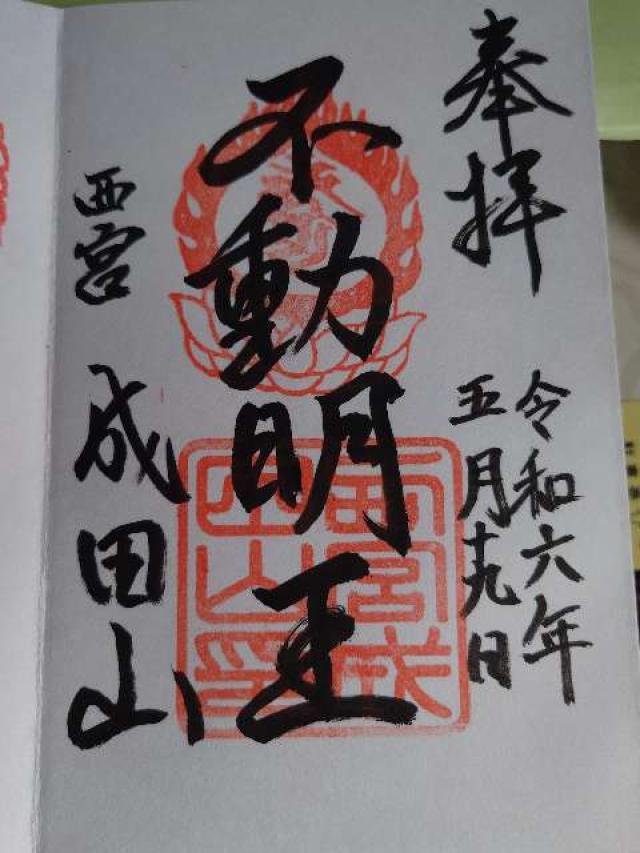 奉拝
令和六年
五月十九日
不動明王
西宮
成田山
西宮成
田山印